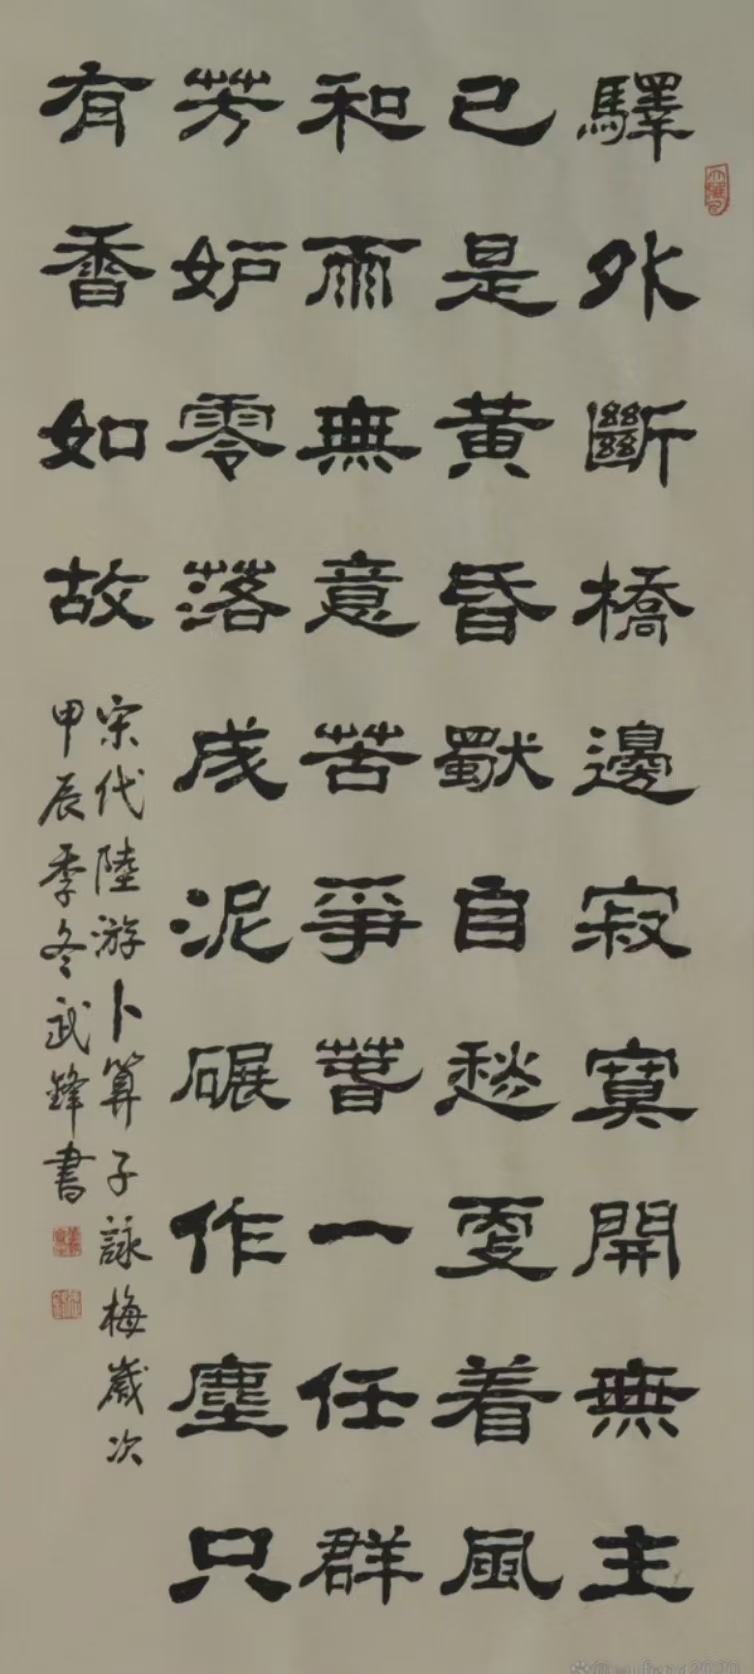 驛外斷橋邊寂寞開無主
已是黃昏獸自愁更着風
和雨無意苦爭春一任群
芳妒零落成泥碾作塵只
有香如故
宋代陸游卜算子詠梅歲次
甲辰季冬武鋒書